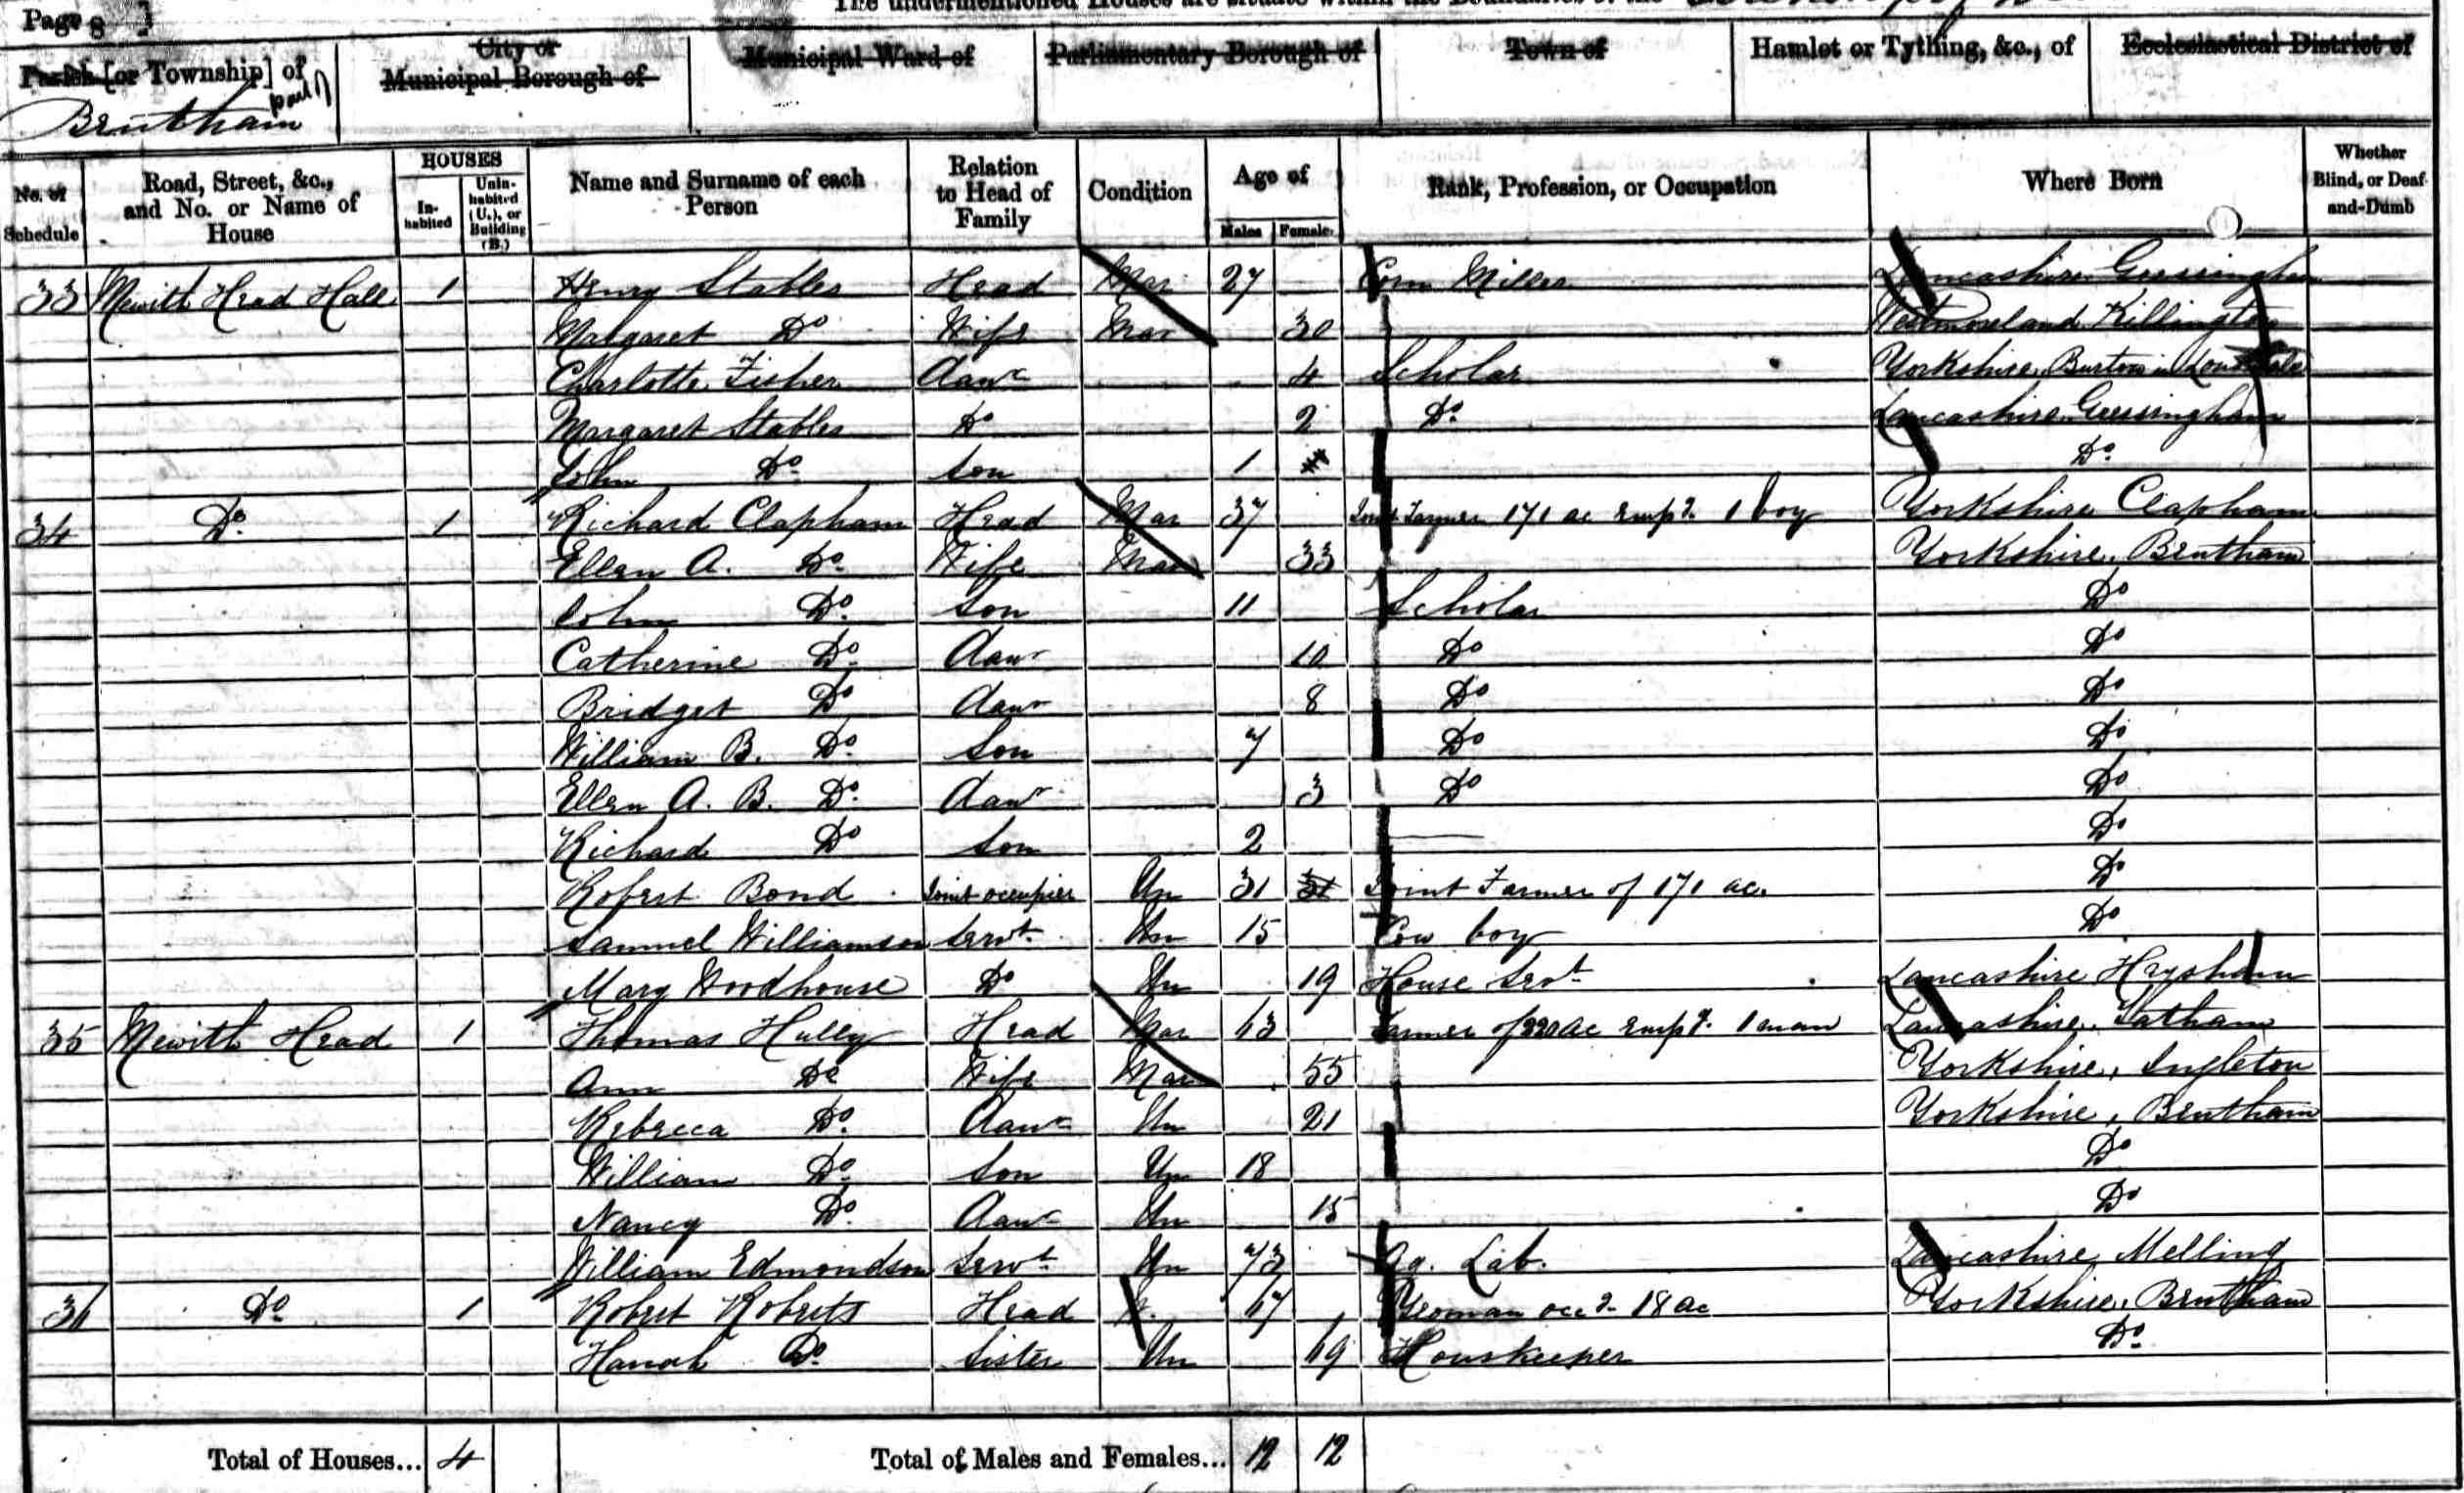 Page 8
The undermentioned Houses are situate within the Boundaries of the
Parish [or Township] of City or Municipal Borough of Municipal Ward of Parliamentary Borough of Town of Hamlet or Tything, &c., of Ecclesiastical District of
Bentham part of
No. of Schedule Road, Street, &c., and No. or Name of House HOUSES Inhabited Uninhabited (U.), or Building (B.) Name and Surname of each Person Relation to Head of Family Condition Age of Males Females Rank, Profession, or Occupation Where Born Whether Blind, or Deaf-and-Dumb
33 Mewith Head Hall 1 Henry Stables Head Mar 27 Corn Miller Lancashire Gressingham
Margaret Do Wife Mar 30 Westmoreland Killington
Charlotte Fisher Daur 4 Scholar Yorkshire, Burton in Lonsdale
Margaret Stables Do 2 Do Lancashire Gressingham
John Do Son 1 Do
34 Do 1 Richard Clapham Head Mar 37 Joint Farmer 171 ac empg 1 boy Yorkshire Clapham
Ellen A. Do Wife Mar 33 Yorkshire, Bentham
John Do Son 11 Scholar Do
Catherine Do Daur 10 Do Do
Bridget Do Daur 8 Do Do
William B. Do Son 7 Do Do
Ellen A. B. Do Daur 3 Do Do
Richard Do Son 2 Do
Robert Bond Joint occupier Un 31 31 Joint Farmer of 171 ac. Do
Samuel Williamson Servt Un 15 Cow boy Do
Mary Woodhouse Do Un 19 House Servt Lancashire Heysham
35 Mewith Head 1 Thomas Hully Head Mar 63 Farmer of 220 ac empg 1 man Lancashire, Tatham
Ann Do Wife Mar 55 Yorkshire, Ingleton
Rebecca Do Daur Un 21 Yorkshire, Bentham
William Do Son Un 18 Do
Nancy Do Daur Un 15 Do
William Edmondson Servt Un 73 Ag. Lab. Lancashire Melling
36 Do 1 Robert Roberts Head 67 Yeoman occg 18 ac Yorkshire, Bentham
Hanah Do Sister Un 69 Houskeeper Do
Total of Houses... 4 Total of Males and Females... 12 12